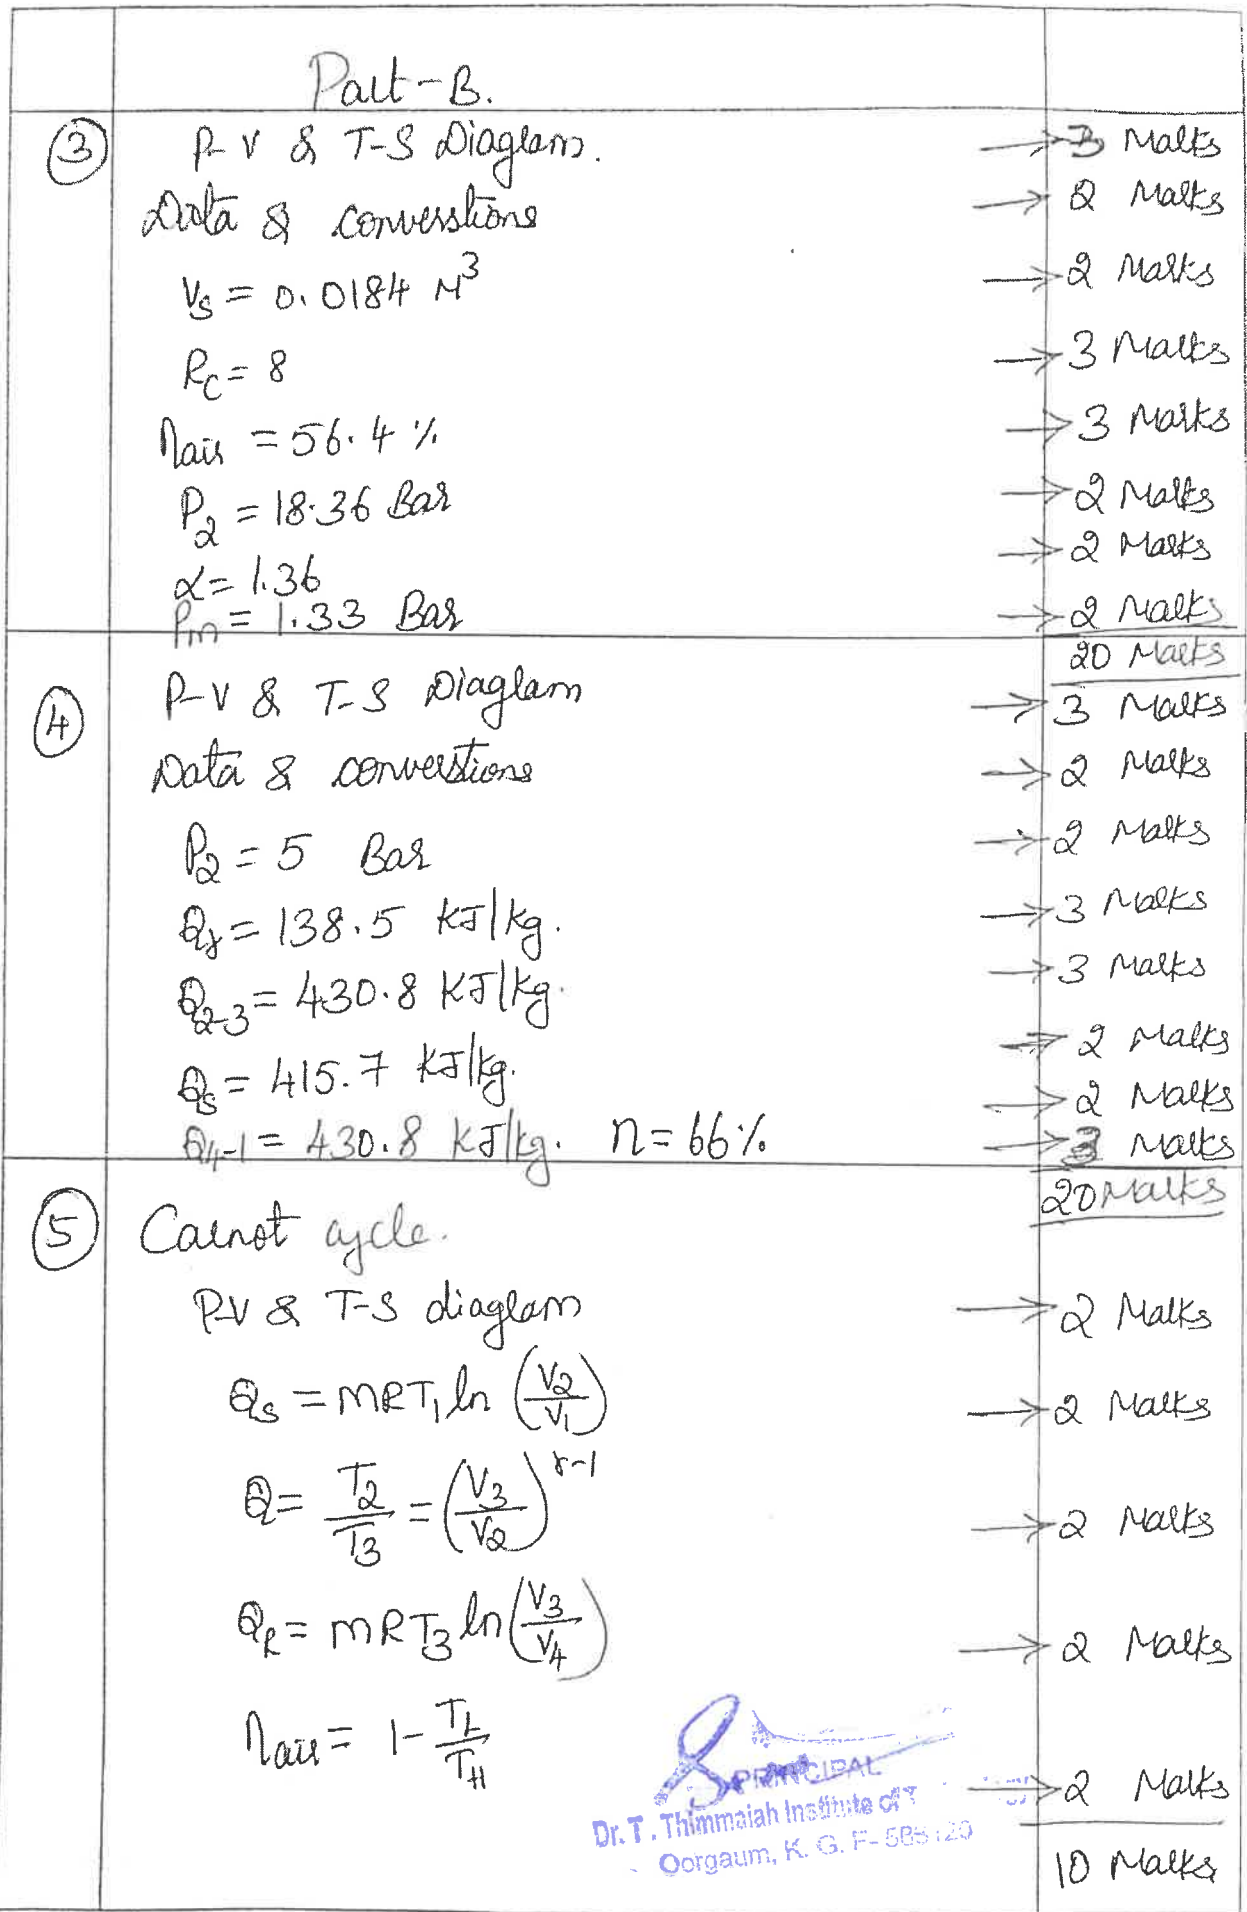 Part-B.
③ P-V & T-S Diagram. → 3 Marks
Data & converstions → 2 Marks
Vs = 0.0184 M³ → 2 Marks
Rc = 8 → 3 Marks
ηair = 56.4 % → 3 Marks
P2 = 18.36 Bar → 2 Marks
α = 1.36 → 2 Marks
Pm = 1.33 Bar → 2 Marks
20 Marks
④ P-V & T-S Diagram → 3 Marks
Data & converstions → 2 Marks
P2 = 5 Bar → 2 Marks
Qr = 138.5 KJ/kg. → 3 Marks
Q2-3 = 430.8 KJ/kg. → 3 Marks
Qs = 415.7 KJ/kg. → 2 Marks
→ 2 Marks
Q4-1 = 430.8 KJ/kg. η = 66% → 3 Marks
20 Marks
⑤ Carnot cycle.
P-V & T-S diagram → 2 Marks
Qs = mRT1 ln (V2/V1) → 2 Marks
Q = T2/T3 = (V3/V2)^γ-1 → 2 Marks
QR = mRT3 ln (V3/V4) → 2 Marks
ηair = 1 - TL/TH → 2 Marks
PRINCIPAL
Dr. T. Thimmaiah Institute of
Oorgaum, K. G. F-
10 Marks